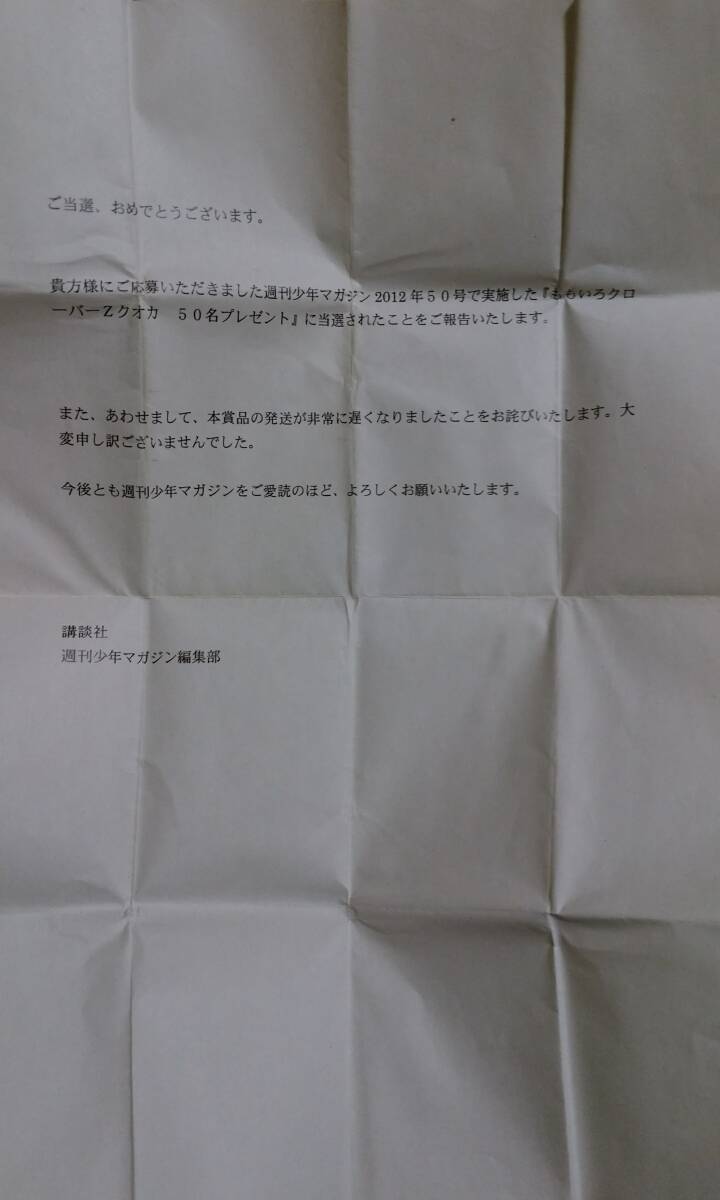 ご当選、おめでとうございます。
貴方様にご応募いただきました週刊少年マガジン2012年５０号で実施した『ももいろクロ
ーバーＺクオカ　５０名プレゼント』に当選されたことをご報告いたします。
また、あわせまして、本賞品の発送が非常に遅くなりましたことをお詫びいたします。大
変申し訳ございませんでした。
今後とも週刊少年マガジンをご愛読のほど、よろしくお願いいたします。
講談社
週刊少年マガジン編集部